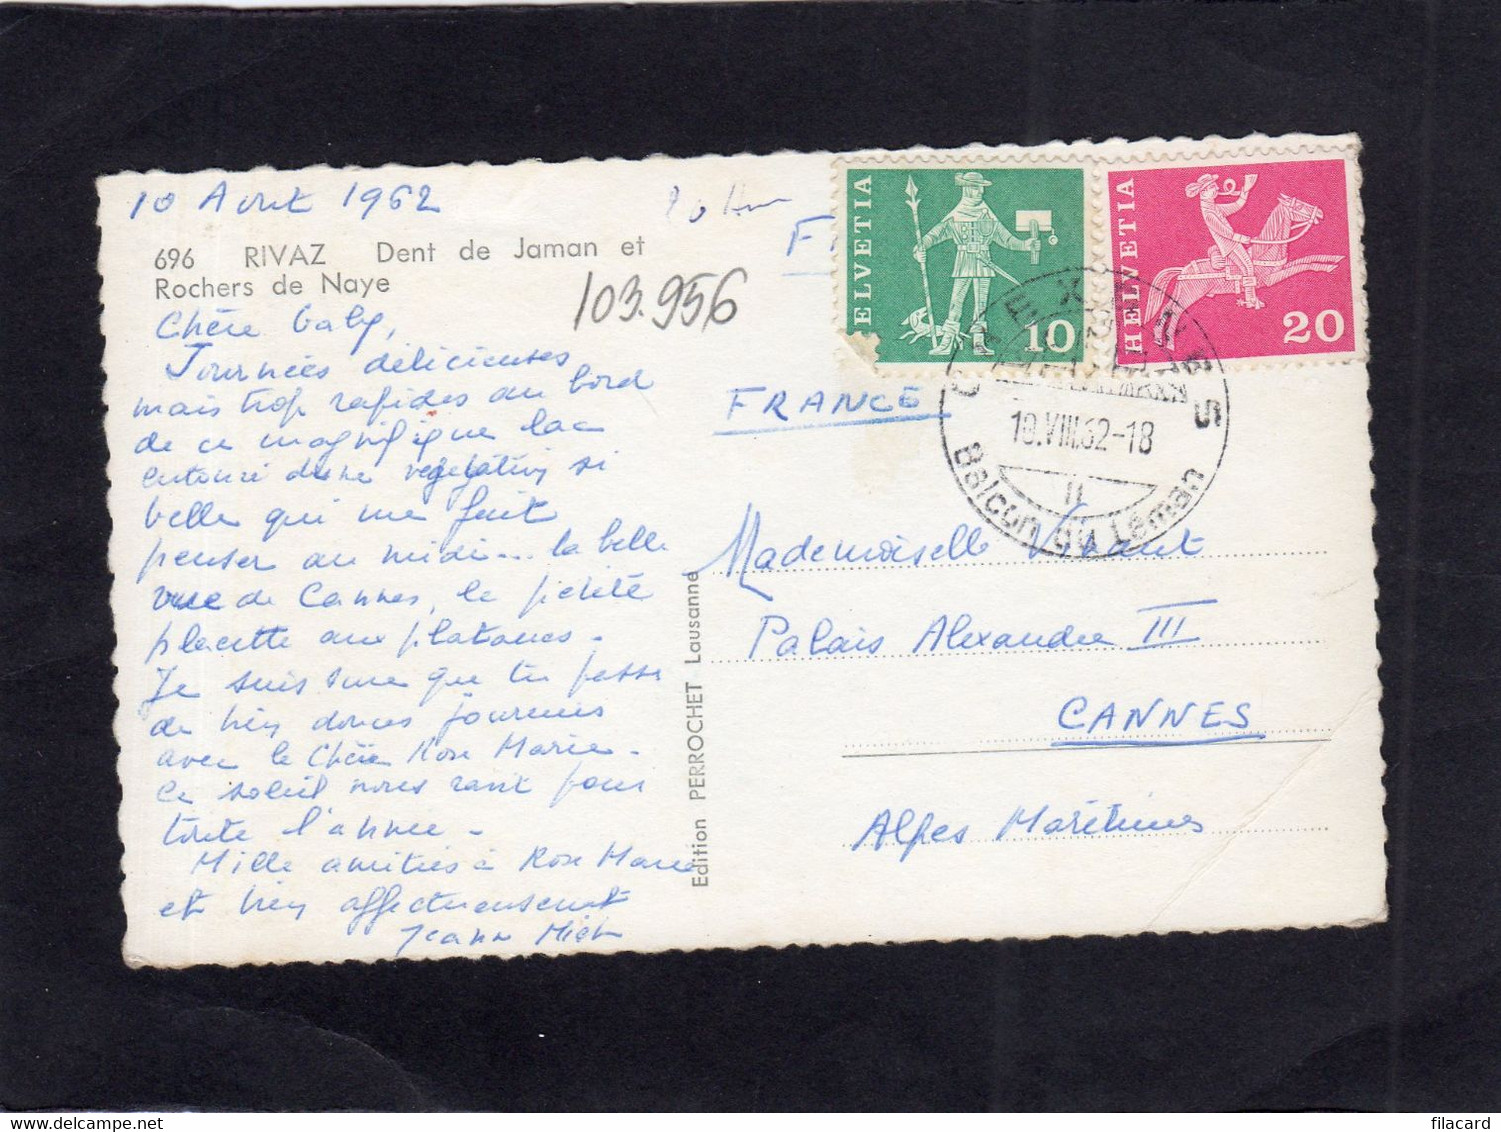 10 Août 1962
696 RIVAZ Dent de Jaman et
Rochers de Naye
103.956
Chère Gaby,
Journées délicieuses
mais trop rapides au bord
de ce magnifique lac
entouré d'une végétation si
belle qui me fait
penser au midi... la belle
vue de Cannes, la petite
placette aux platanes -
Je suis sûre que tu passes
de bien douces journées
avec la Chère Rose Marie -
Ce soleil nous ravit pour
toute l'année -
Mille amitiés à Rose Marie
et bien affectueusement
Edition PERROCHET Lausanne
HELVETIA
10
HELVETIA
20
CHEXBRES
10.VIII.62-18
Balcon du Léman
FRANCE
Mademoiselle
Palais Alexandre III
CANNES
Alpes Maritimes
filacard
www.delcampe.net